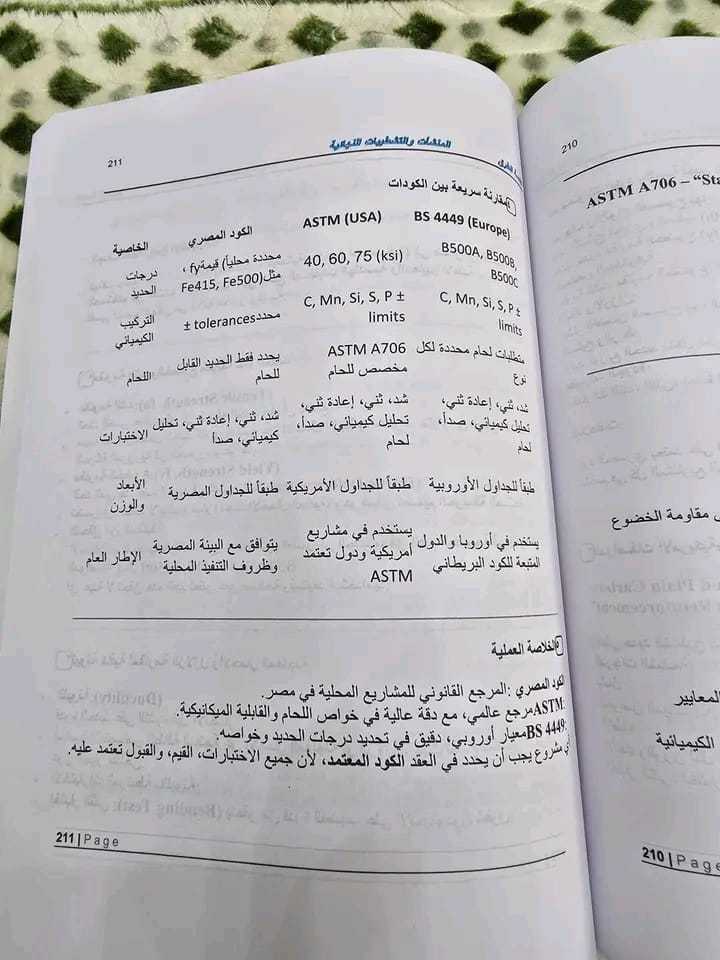 211
المنشآت والتشطيبات النهائية
مقارنة سريعة بين الكودات
الخاصية الكود المصري ASTM (USA) BS 4449 (Europe)
درجات الحديد محددة محلياً) قيمةfy ، مثلFe415, Fe500) 40, 60, 75 (ksi) B500A, B500B, B500C
التركيب الكيميائي محددtolerances ± C, Mn, Si, S, P ± limits C, Mn, Si, S, P ± limits
اللحام يحدد فقط الحديد القابل للحام ASTM A706 مخصص للحام متطلبات لحام محددة لكل نوع
الاختبارات شد، ثني، إعادة ثني، تحليل كيميائي، صدأ شد، ثني، إعادة ثني، تحليل كيميائي، صدأ، لحام شد، ثني، إعادة ثني، تحليل كيميائي، صدأ، لحام
الأبعاد والوزن طبقاً للجداول المصرية طبقاً للجداول الأمريكية طبقاً للجداول الأوروبية
الإطار العام يتوافق مع البيئة المصرية وظروف التنفيذ المحلية يستخدم في مشاريع أمريكية ودول تعتمد ASTM يستخدم في أوروبا والدول المتبعة للكود البريطاني
الخلاصة العملية
الكود المصري :المرجع القانوني للمشاريع المحلية في مصر.
ASTM:مرجع عالمي، مع دقة عالية في خواص اللحام والقابلية الميكانيكية.
BS 4449:معيار أوروبي، دقيق في تحديد درجات الحديد وخواصه.
مشروع يجب أن يحدد في العقد الكود المعتمد، لأن جميع الاختبارات، القيم، والقبول تعتمد عليه.
211 | Page
210
ASTM A706 – “Sta
مقاومة الخضوع
المعايير
الكيميائية
210 | Pag